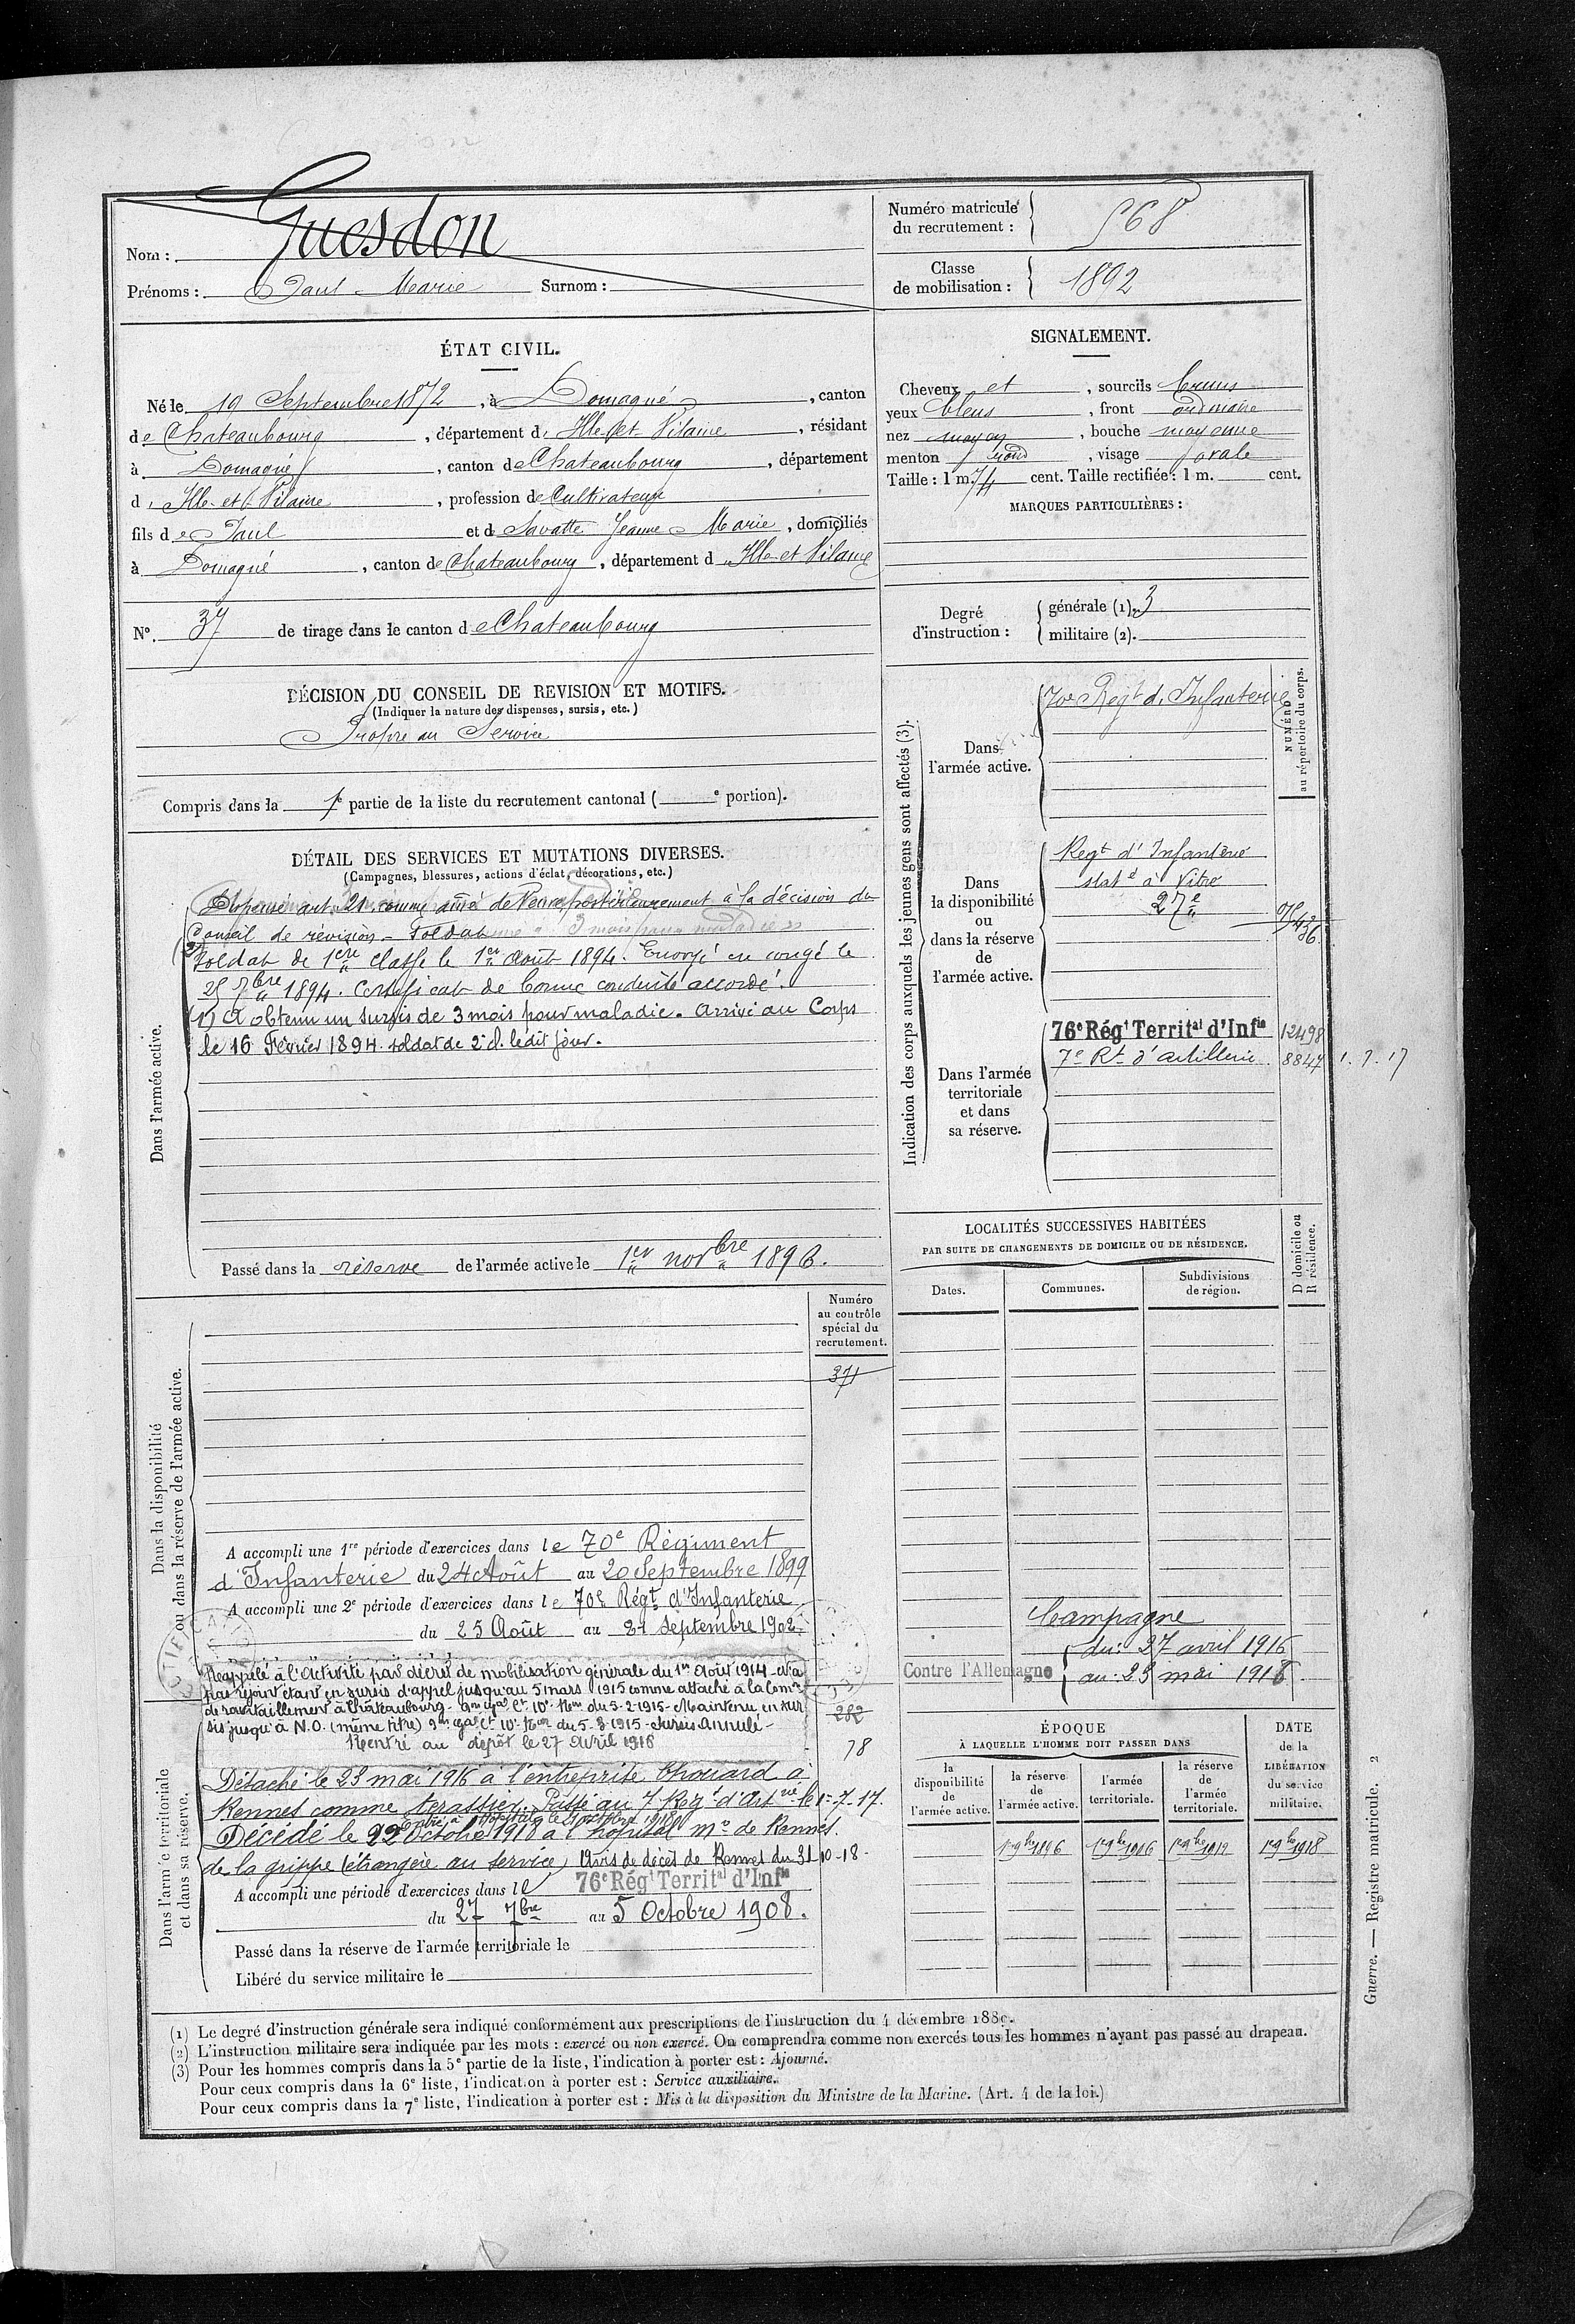 Nom : Guesdon
Prénoms : Paul Marie Surnom :
Numéro matricule du recrutement : 568
Classe de mobilisation : 1892
ÉTAT CIVIL.
Né le 19 Septembre 1872, à Domagné, canton
de Chateaubourg, département d'Ille-et-Vilaine, résidant
à Domagné, canton de Chateaubourg, département
d'Ille-et-Vilaine, profession de Cultivateur
fils de Paul et de Savatte Jeanne Marie, domiciliés
à Domagné, canton de Chateaubourg, département d'Ille-et-Vilaine
N° 37 de tirage dans le canton de Chateaubourg
SIGNALEMENT.
Cheveux et, sourcils bruns
yeux bleus, front ordinaire
nez moyen, bouche moyenne
menton rond, visage ovale
Taille : 1 m. 74 cent. Taille rectifiée : 1 m. cent.
MARQUES PARTICULIÈRES :
Degré d'instruction :
générale (1). 3
militaire (2).
DÉCISION DU CONSEIL DE REVISION ET MOTIFS.
(Indiquer la nature des dispenses, sursis, etc.)
Propre au Service
Compris dans la 1e partie de la liste du recrutement cantonal ( e portion).
DÉTAIL DES SERVICES ET MUTATIONS DIVERSES.
(Campagnes, blessures, actions d'éclat, décorations, etc.)
Dans l'armée active.
Dispensé art. 21 comme aîné de veuve postérieurement à la décision du
Conseil de révision - Soldat
(2) Soldat de 1ère classe le 1er Août 1894. Envoyé en congé le
25 7bre 1894. Certificat de bonne conduite accordé.
(1) A obtenu un sursis de 3 mois pour maladie. Arrivé au Corps
le 16 Février 1894. soldat de 2e cl. ledit jour.
Passé dans la réserve de l'armée active le 1er novbre 1896.
Indication des corps auxquels les jeunes gens sont affectés (3).
NUMÉRO au répertoire du corps.
Dans l'armée active.
70e Regt d'Infanterie
Dans la disponibilité ou dans la réserve de l'armée active.
Regt d'Infanterie
statd à Vitré
27e
Dans l'armée territoriale et dans sa réserve.
76e Régt Territal d'Infie 12498
7e Rt d'artillerie 8847 1.7.17
LOCALITÉS SUCCESSIVES HABITÉES
PAR SUITE DE CHANGEMENTS DE DOMICILE OU DE RÉSIDENCE.
Dates. Communes. Subdivisions de région. D domicile ou R résidence.
Campagne
Contre l'Allemagne
du : 27 avril 1916
au : 23 mai 1916
Dans la disponibilité ou dans la réserve de l'armée active.
Numéro au contrôle spécial du recrutement.
371
A accompli une 1re période d'exercices dans le 70e Régiment
d'Infanterie du 24 Août au 20 Septembre 1899
A accompli une 2e période d'exercices dans le 70e Régt d'Infanterie
du 25 Août au 21 Septembre 1902
Dans l'armée territoriale et dans sa réserve.
Rappelé à l'activité par décret de mobilisation générale du 1er Août 1914 - N'a
pas rejoint étant en sursis d'appel jusqu'au 5 mars 1915 comme attaché à la Comon
de ravitaillement à Châteaubourg - du 5-2-1915 - Maintenu en sur
sis jusqu'à N.O. (même titre) du 5-8-1915 - Sursis annulé -
Rentré au dépôt le 27 Avril 1916
282
78
Détaché le 23 mai 1916 à l'entreprise Chouard à
Rennes comme terrassier. Passé au 7 Regt d'Artrie le 1-7-17.
Entré à l'hôpital le 21 octobre 1918
Décédé le 22 Octobre 1918 à l'hôpital mre de Rennes.
de la grippe (étrangère au service) Avis de décès de Rennes du 31-10-18-
A accompli une période d'exercices dans le 76e Régt Territal d'Infie
du 27 7bre au 5 Octobre 1908.
Passé dans la réserve de l'armée territoriale le
Libéré du service militaire le
ÉPOQUE
À LAQUELLE L'HOMME DOIT PASSER DANS
la disponibilité de l'armée active.
la réserve de l'armée active. 1er 9bre 1896
l'armée territoriale. 1er 9bre 1906
la réserve de l'armée territoriale. 1er 9bre 1912
DATE de la LIBÉRATION du service militaire. 1er 9bre 1918
(1) Le degré d'instruction générale sera indiqué conformément aux prescriptions de l'instruction du 4 décembre 1889.
(2) L'instruction militaire sera indiquée par les mots : exercé ou non exercé. On comprendra comme non exercés tous les hommes n'ayant pas passé au drapeau.
(3) Pour les hommes compris dans la 5e partie de la liste, l'indication à porter est : Ajourné.
Pour ceux compris dans la 6e liste, l'indication à porter est : Service auxiliaire.
Pour ceux compris dans la 7e liste, l'indication à porter est : Mis à la disposition du Ministre de la Marine. (Art. 4 de la loi.)
Guerre. — Registre matricule. 2